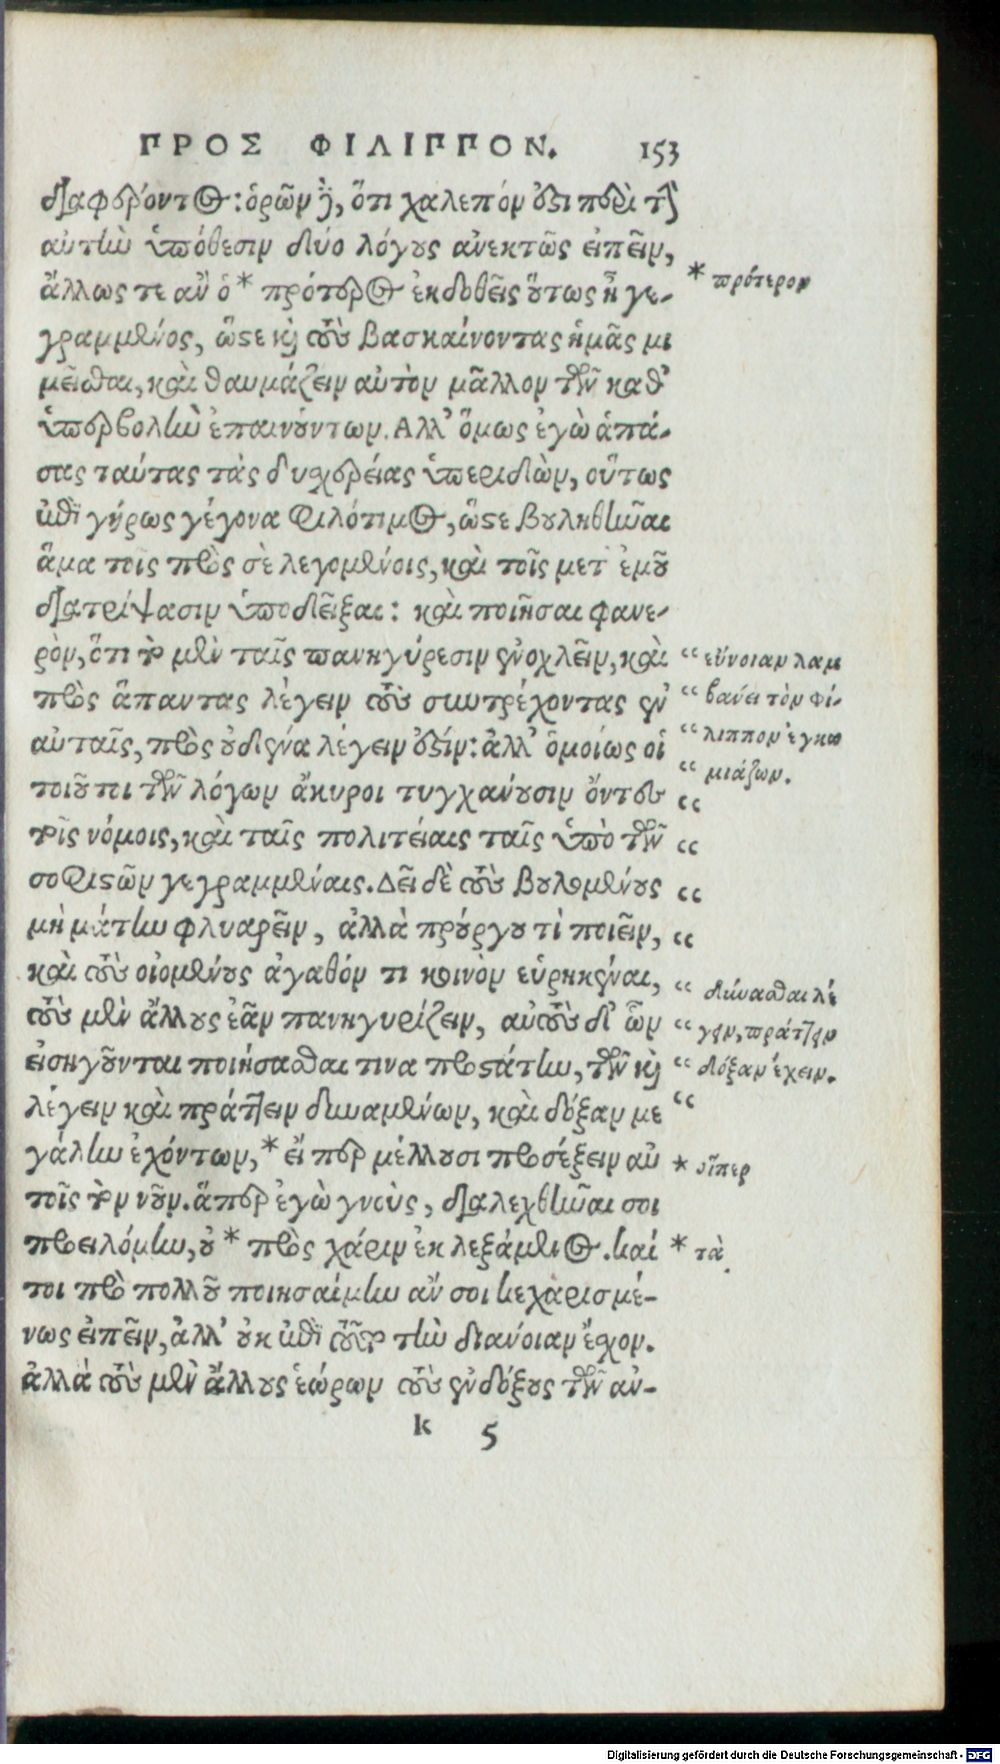 ΠΡΟΣ ΦΙΛΙΠΠΟΝ. 153
διαφέροντος: ὁρῶν δὲ, ὅτι χαλεπόν ἐστι περὶ τὴν
αὐτὴν ὑπόθεσιν δύο λόγους ἀνεκτῶς εἰπεῖν,
ἄλλως τε ἂν ὁ * πρότερος ἐκδοθεῖς οὕτως ᾖ γε-
γραμμένος, ὥστε καὶ τοὺς βασκαίνοντας ἡμᾶς μι
μεῖσθαι, καὶ θαυμάζειν αὐτὸν μᾶλλον τῶν καθ'
ὑπερβολὴν ἐπαινούντων. Αλλ' ὅμως ἐγὼ ἁπά-
σας ταύτας τὰς δυσχερείας ὑπεριδὼν, οὕτως
ἐπὶ γήρως γέγονα φιλότιμος, ὥστε βουληθῆναι
ἅμα τοῖς πρὸς σὲ λεγομένοις, καὶ τοῖς μετ' ἐμοῦ
διατρίψασιν ὑποδεῖξαι: καὶ ποιῆσαι φανε-
ρὸν, ὅτι τὸ μὲν ταῖς πανηγύρεσιν ἐνοχλεῖν, καὶ
πρὸς ἅπαντας λέγειν τοὺς συντρέχοντας ἐν
αὐταῖς, πρὸς οὐδένα λέγειν ἐστίν: ἀλλ' ὁμοίως οἱ
τοιοῦτοι τῶν λόγων ἄκυροι τυγχάνουσιν ὄντες
τοῖς νόμοις, καὶ ταῖς πολιτείαις ταῖς ὑπὸ τῶν
σοφιστῶν γεγραμμέναις. Δεῖ δὲ τοὺς βουλομένους
μὴ μάτην φλυαρεῖν, ἀλλὰ προύργου τὶ ποιεῖν,
καὶ τοὺς οἰομένους ἀγαθόν τι κοινὸν εὑρηκέναι,
τοὺς μὲν ἄλλους ἐᾶν πανηγυρίζειν, αὐτοὺς δ' ὧν
εἰσηγοῦνται ποιήσασθαι τινα προστάτην, τῶν καὶ
λέγειν καὶ πράττειν δυναμένων, καὶ δόξαν με
γάλην ἐχόντων, * εἴ περ μέλλουσι προσέξειν αὐ
τοῖς τὸν νοῦν. ἅπερ ἐγὼ γνοὺς, διαλεχθῆναι σοι
προειλόμην, οὐ * πρὸς χάριν ἐκλεξάμενος. καί
τοι πρὸ πολλοῦ ποιησαίμην ἄν σοι κεχαρισμέ-
νως εἰπεῖν, ἀλλ' οὐκ ἐπὶ τούτῳ τὴν διάνοιαν ἔσχον.
ἀλλὰ τοὺς μὲν ἄλλους ἑώρων τοὺς ἐνδόξους τῶν ἀν-
k 5
* πρότερον
“ εὔνοιαν λαμ
“ βάνει τὸν φί-
“ λιππον ἐγκω
“ μιάζων.
“
“
“
“
“ δύνασθαι λέ
“ γειν, πράττειν
“ δόξαν ἔχειν.
“
* οἵπερ
* τὰ
Digitalisierung gefördert durch die Deutsche Forschungsgemeinschaft - DFG